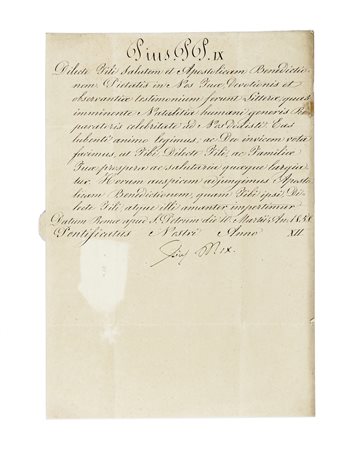 Pius P.P. IX
Dilecte Fili Salutem et Apostolicam Benedictio-
nem. Pietatis in Nos Tuæ, Devotionis et
observantiæ testimonium ferunt Litteræ, quas
imminente Natalitia humani generis Re-
paratoris celebritate ad Nos dedisti. Eas
libenti animo legimus, ac Deo invicem vota
facimus, ut Tibi Dilecte Fili, ac Familiæ
Tuæ prospera ac salutaria quæque largia-
tur. Horum auspicem adjungimus Aposto-
licam Benedictionem, quam Tibi ipsi Di-
lecte Fili atque illi amanter impertimur
Datum Romæ apud S. Petrum die Martii An. 1858
Pontificatus Nostri Anno XII
Pius PP. IX.